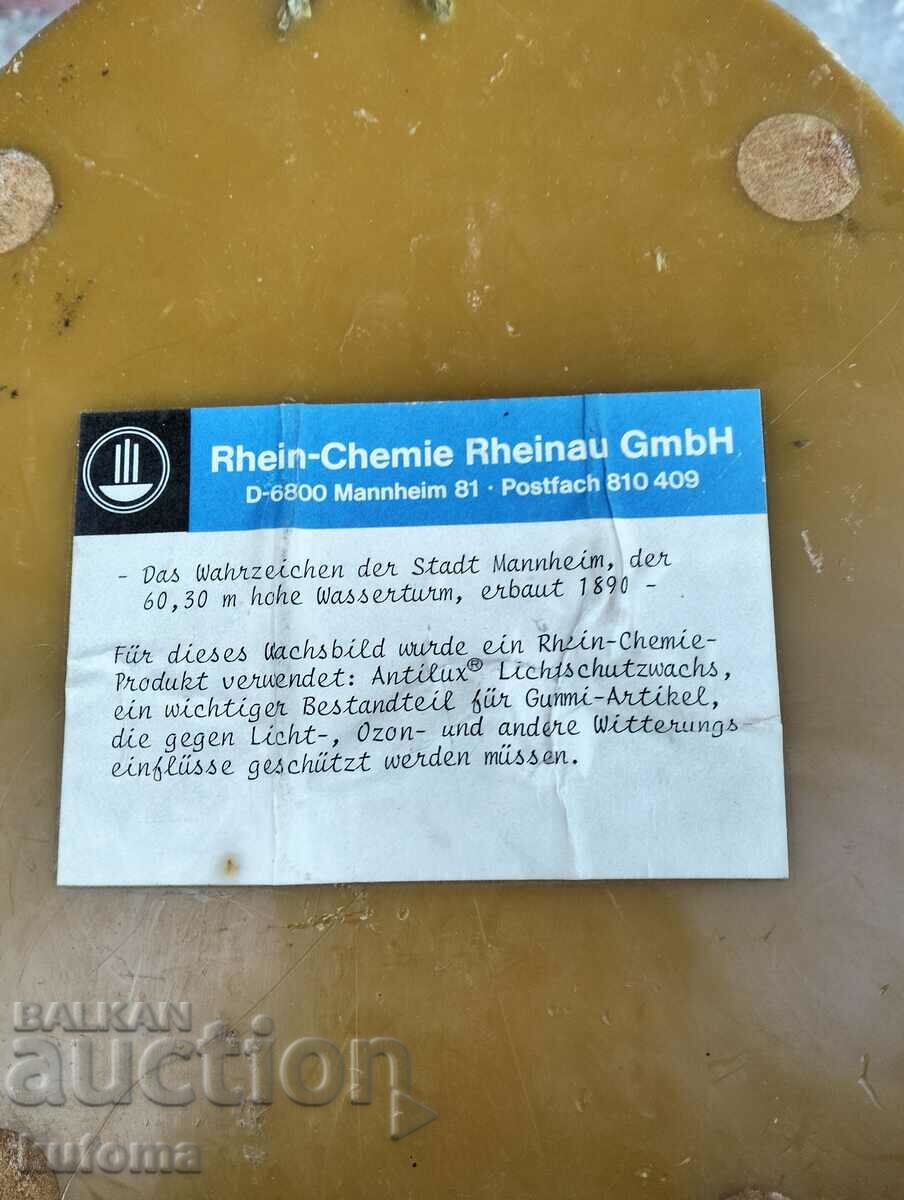 Rhein-Chemie Rheinau GmbH
D-6800 Mannheim 81 · Postfach 810 409
- Das Wahrzeichen der Stadt Mannheim, der
60,30 m hohe Wasserturm, erbaut 1890 -
Für dieses Wachsbild wurde ein Rhein-Chemie-
Produkt verwendet: Antilux® Lichtschutzwachs,
ein wichtiger Bestandteil für Gummi-Artikel,
die gegen Licht-, Ozon- und andere Witterungs-
einflüsse geschützt werden müssen.
BALKAN
auction
kufoma